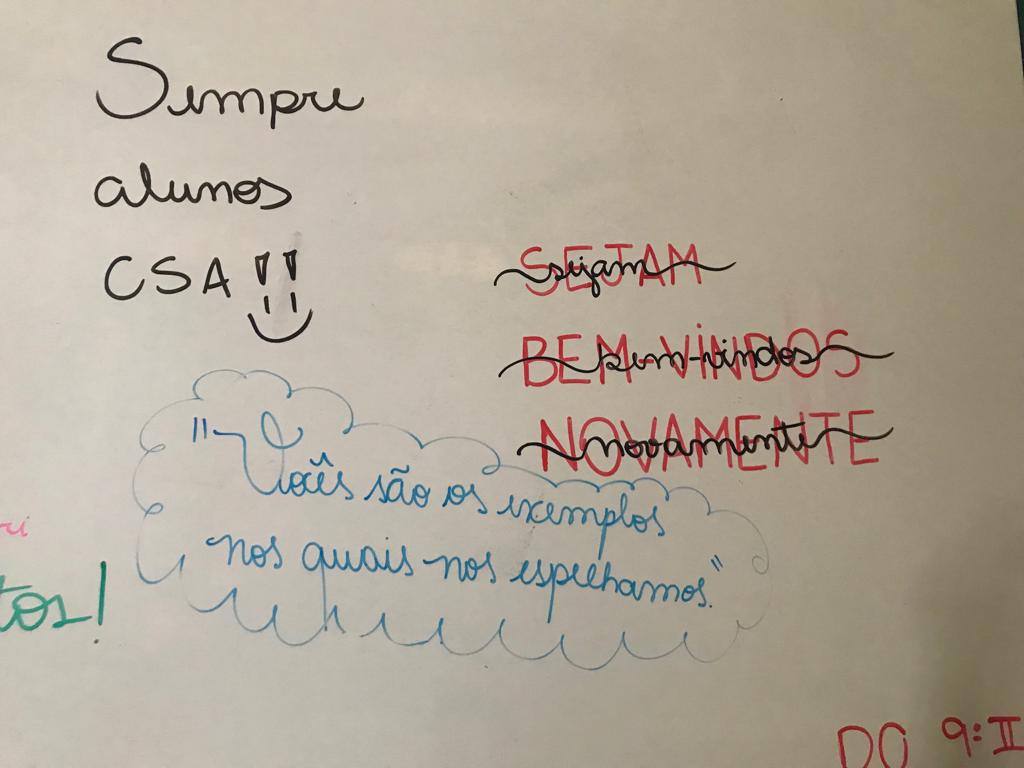 Sempre
alunos
CSA!!
SEJAM
sejam
BEM-VINDOS
bem-vindos
NOVAMENTE
novamente
"Vocês são os exemplos
nos quais nos espelhamos."
ri
tos!
DO 9:II